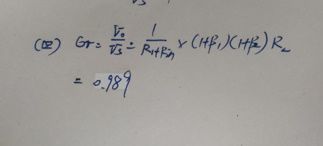 (四) Gr = V₀/Vs = 1/(R₁+Rin) × (1+β₁)(1+β₂) R
= 0.989